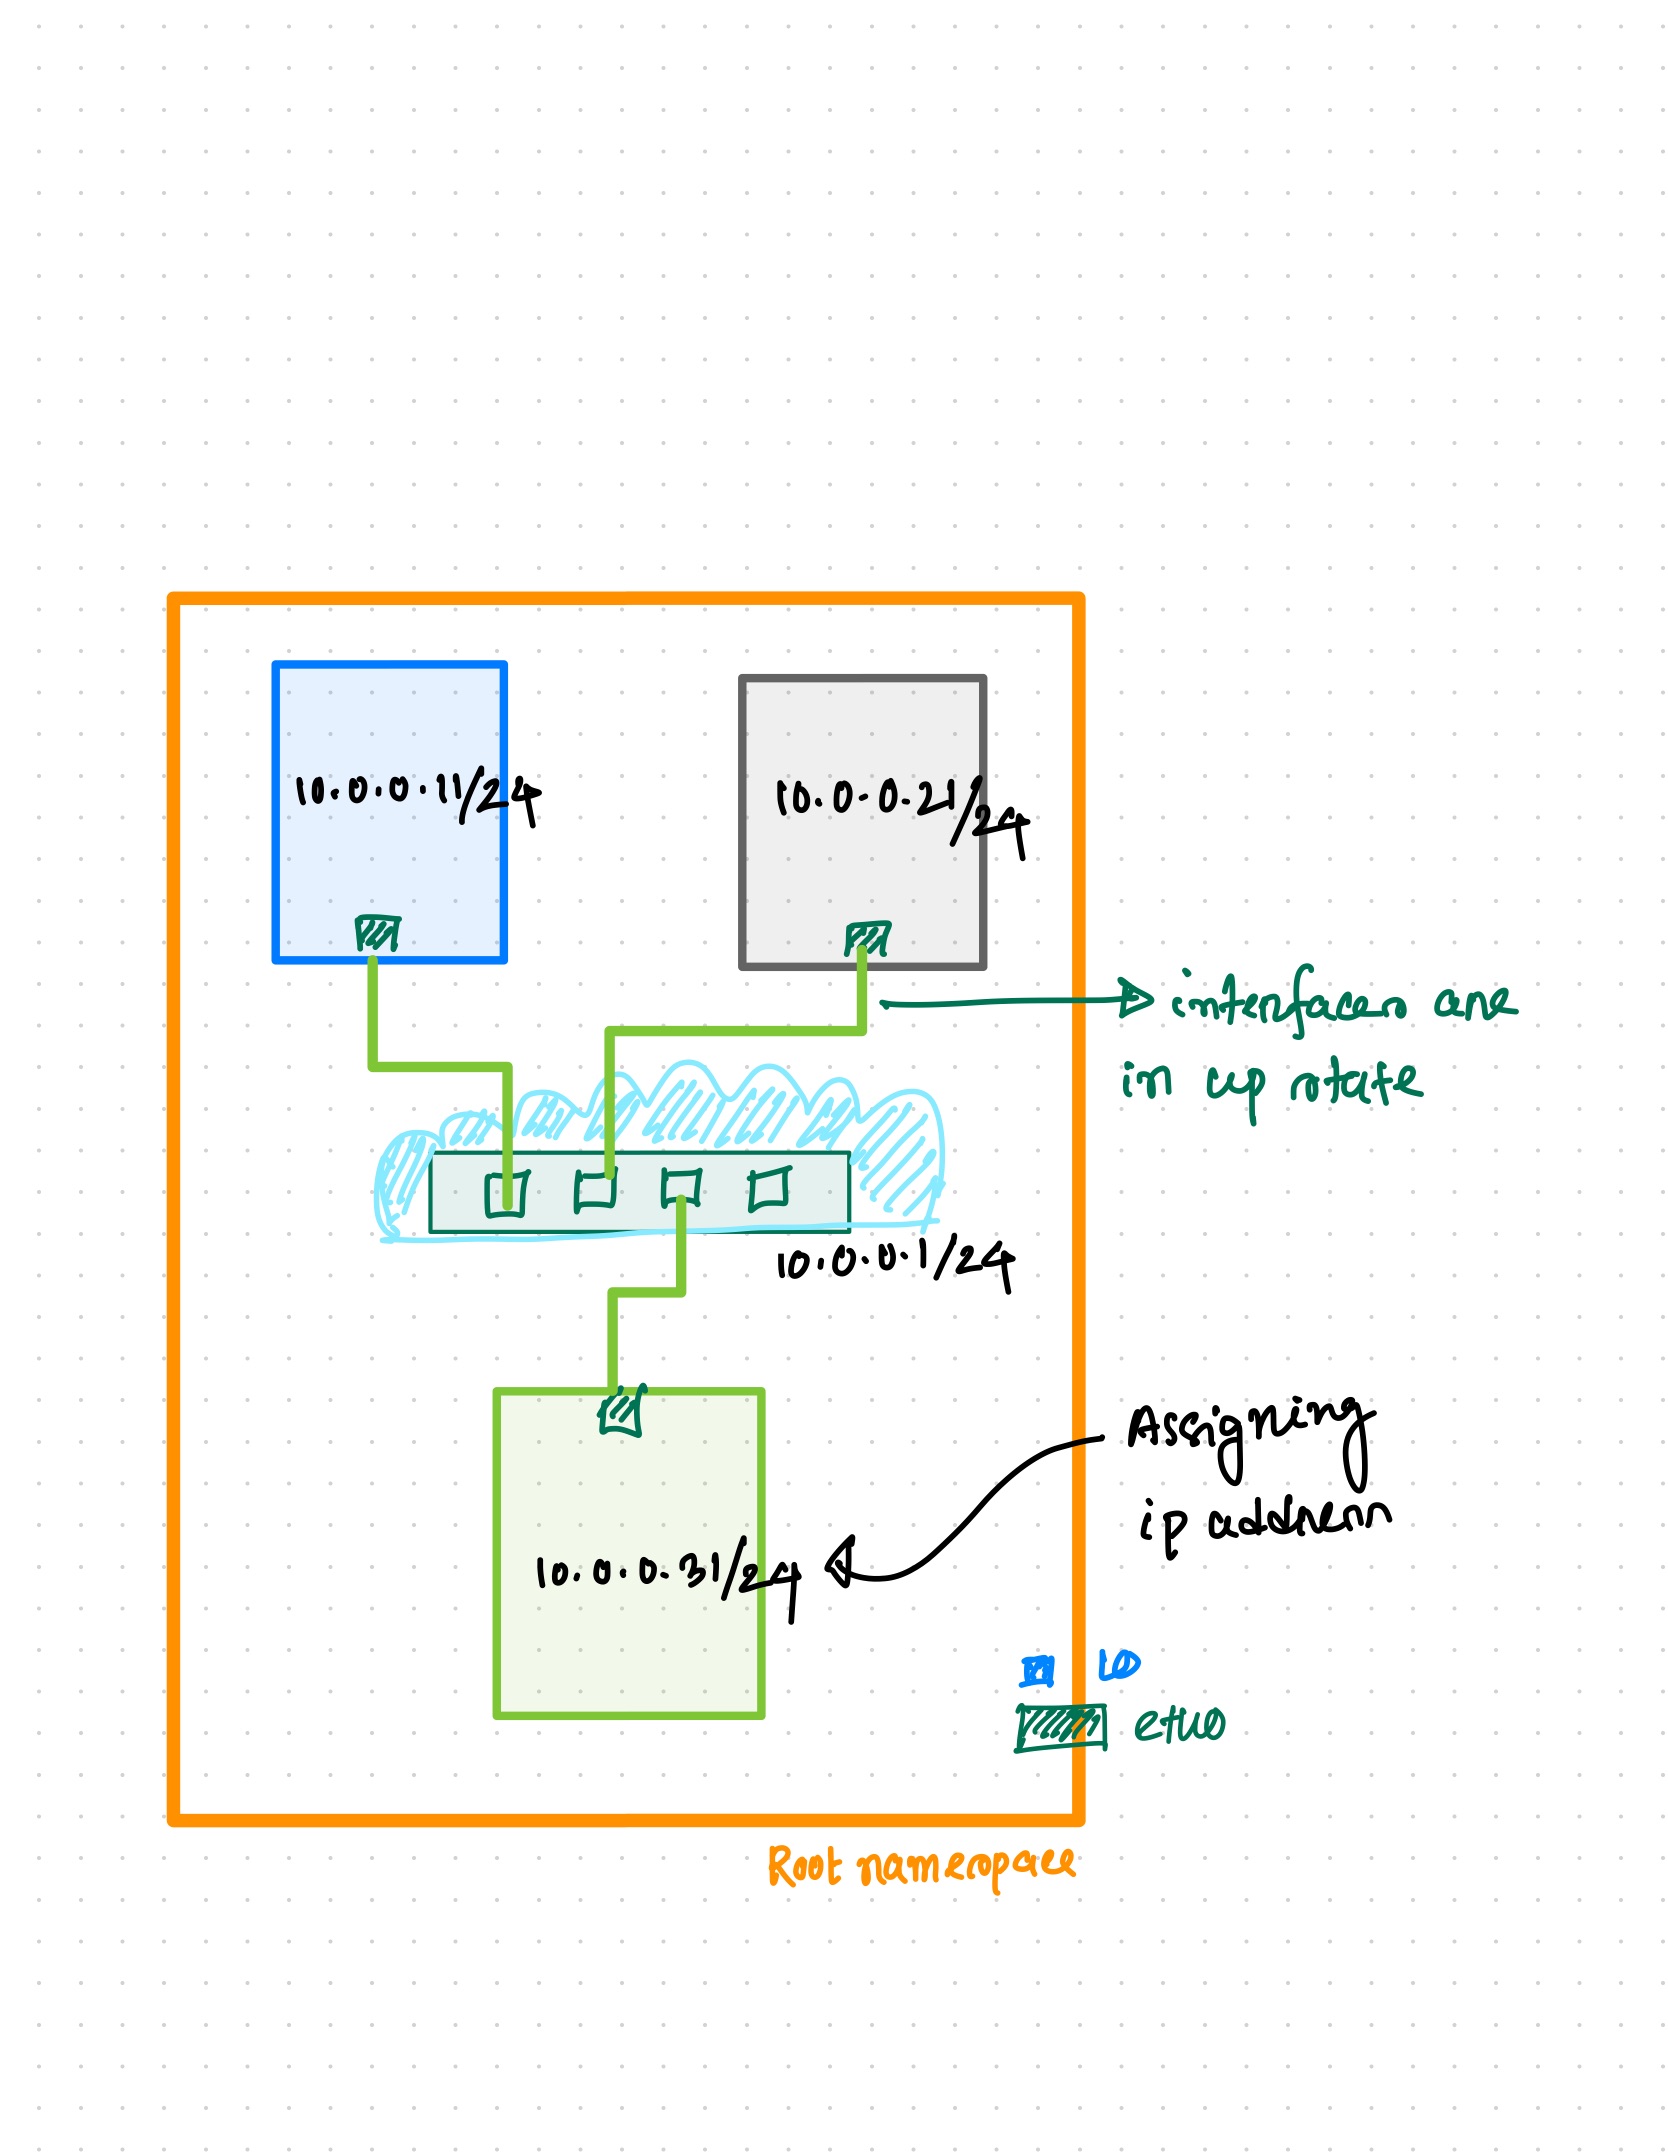 10.0.0.11/24
10.0.0.21/24
interfaces are
in up state
10.0.0.1/24
Assigning
ip address
10.0.0.31/24
lo
eth0
Root namespace